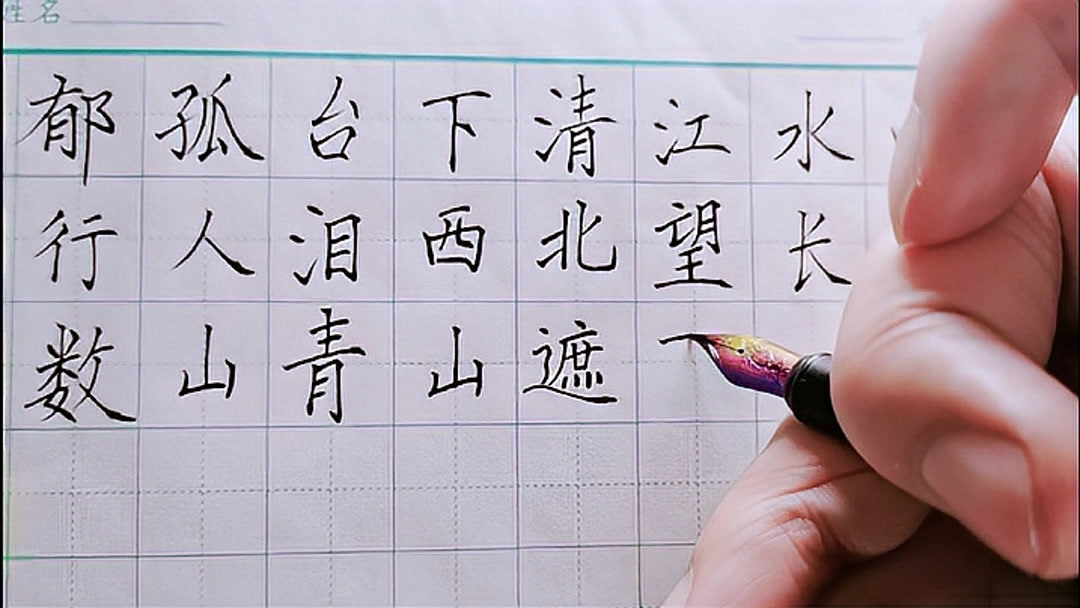 姓名
郁孤台下清江水
行人泪西北望长
数山青山遮